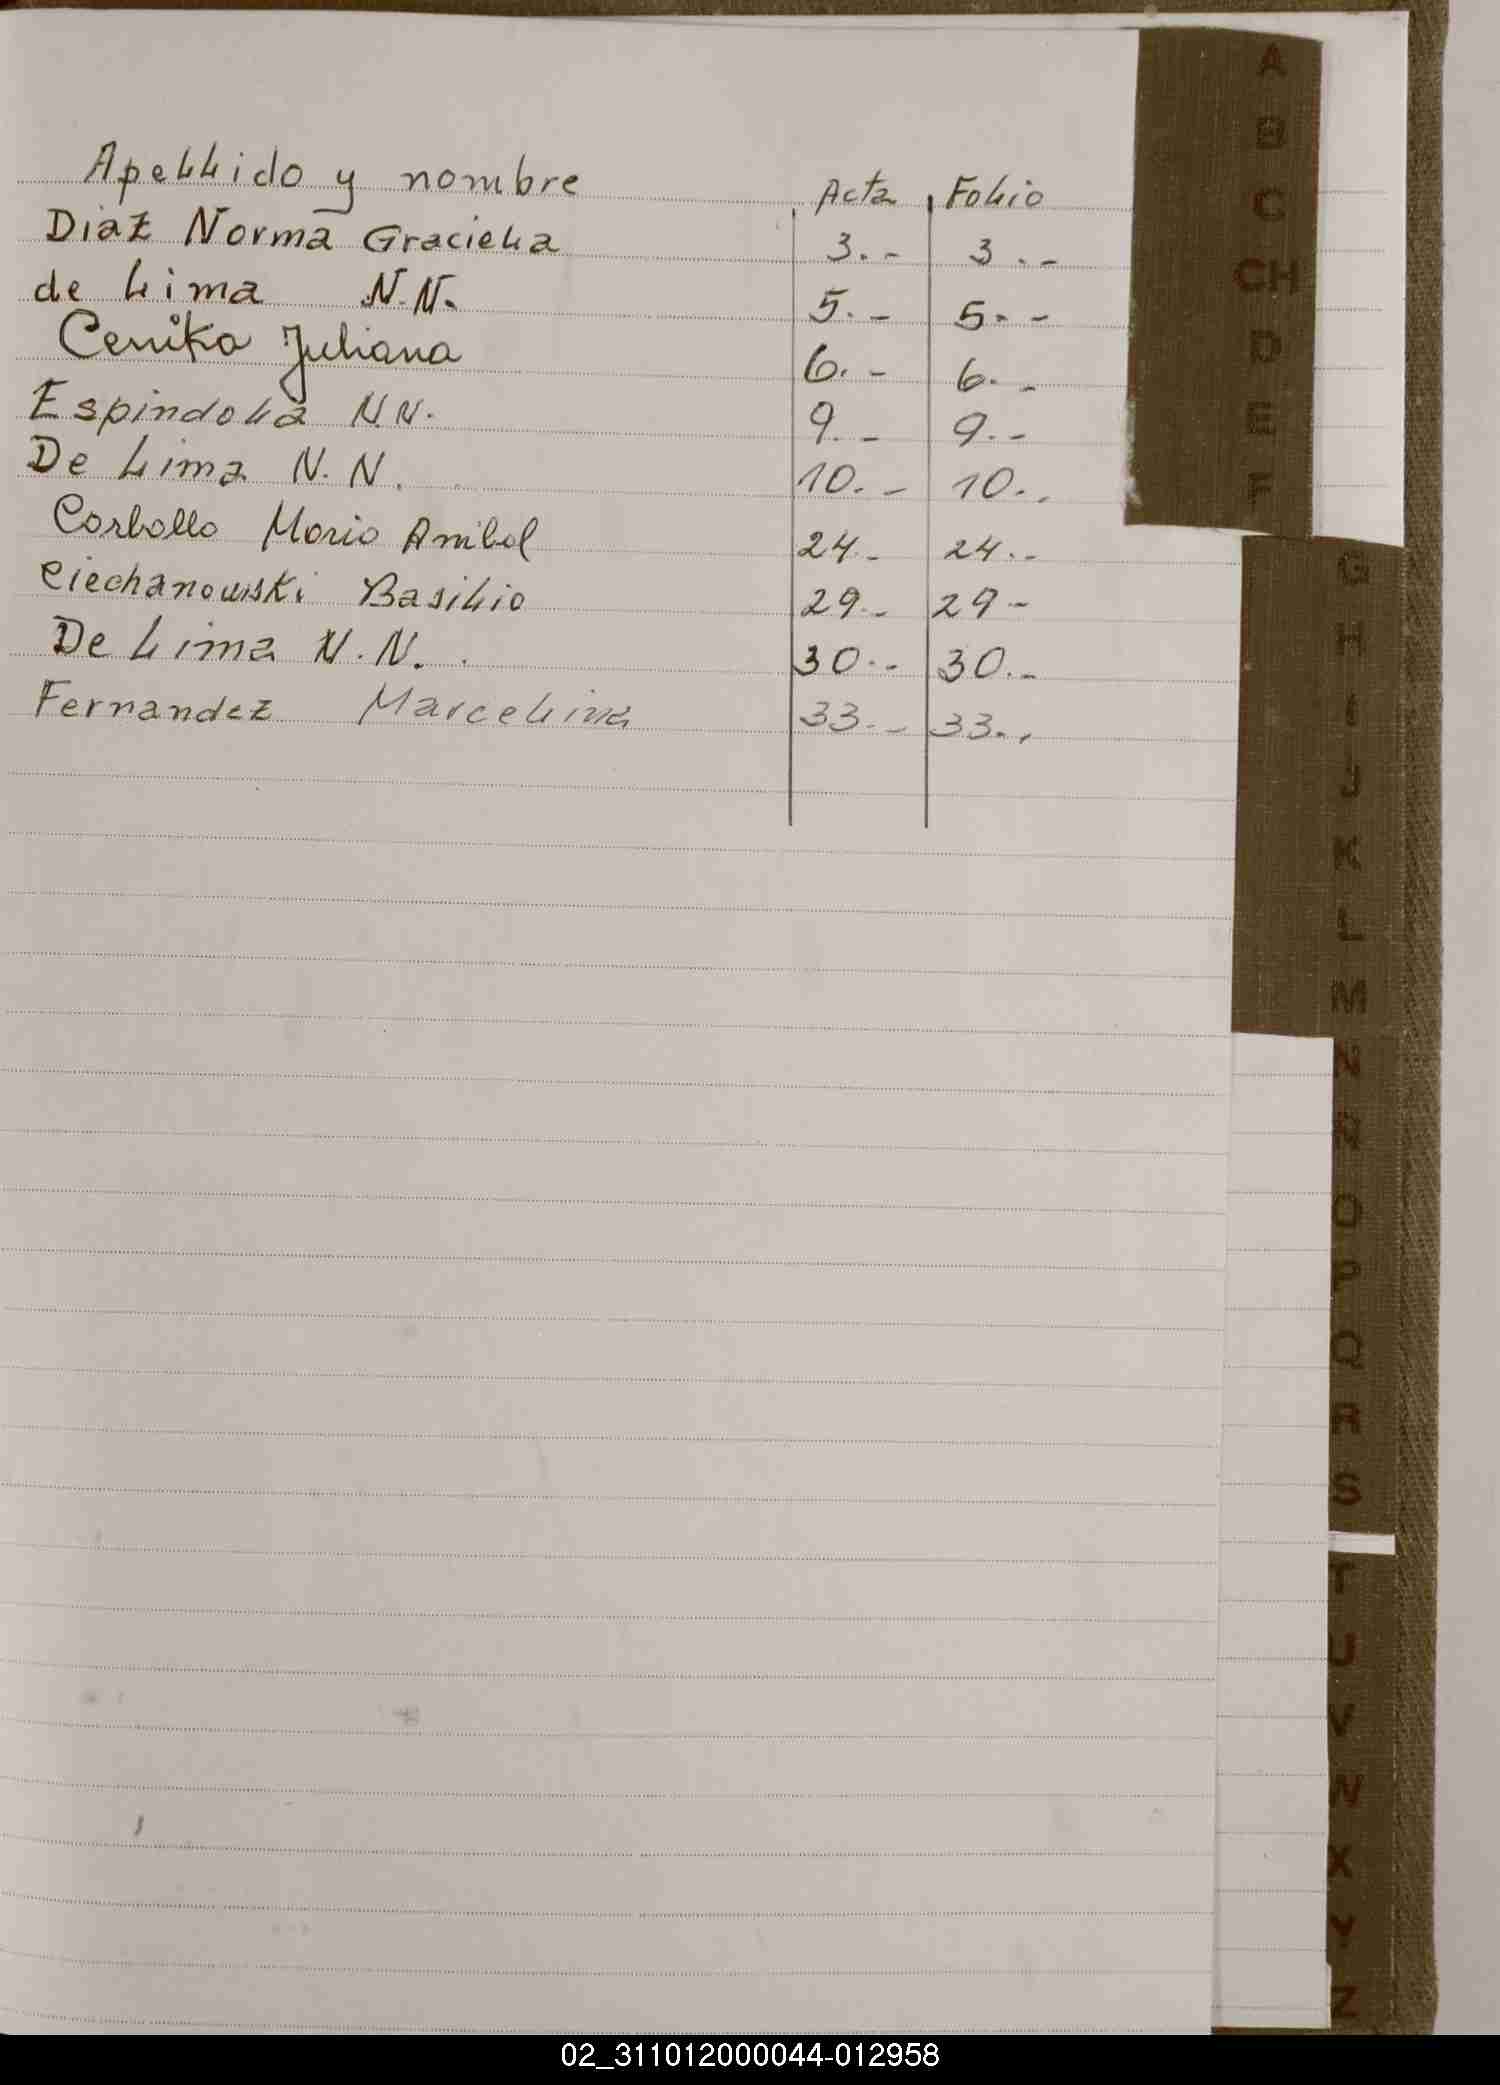 Apellido y nombre Acta Folio
Diaz Norma Graciela 3.- 3.-
de Lima N.N. 5.- 5.-
Cenika Juliana 6.- 6.-
Espindola N.N. 9.- 9.-
De Lima N.N. 10.- 10..
Carballo Mario Anibal 24.- 24.-
Ciechanowski Basilio 29.- 29-
De Lima N.N. 30.- 30.-
Fernandez Marcelina 33.- 33..
A
B
C
CH
D
E
F
G
H
I
J
K
L
M
N
Ñ
O
P
Q
R
S
T
U
V
W
X
Y
Z
02_311012000044-012958